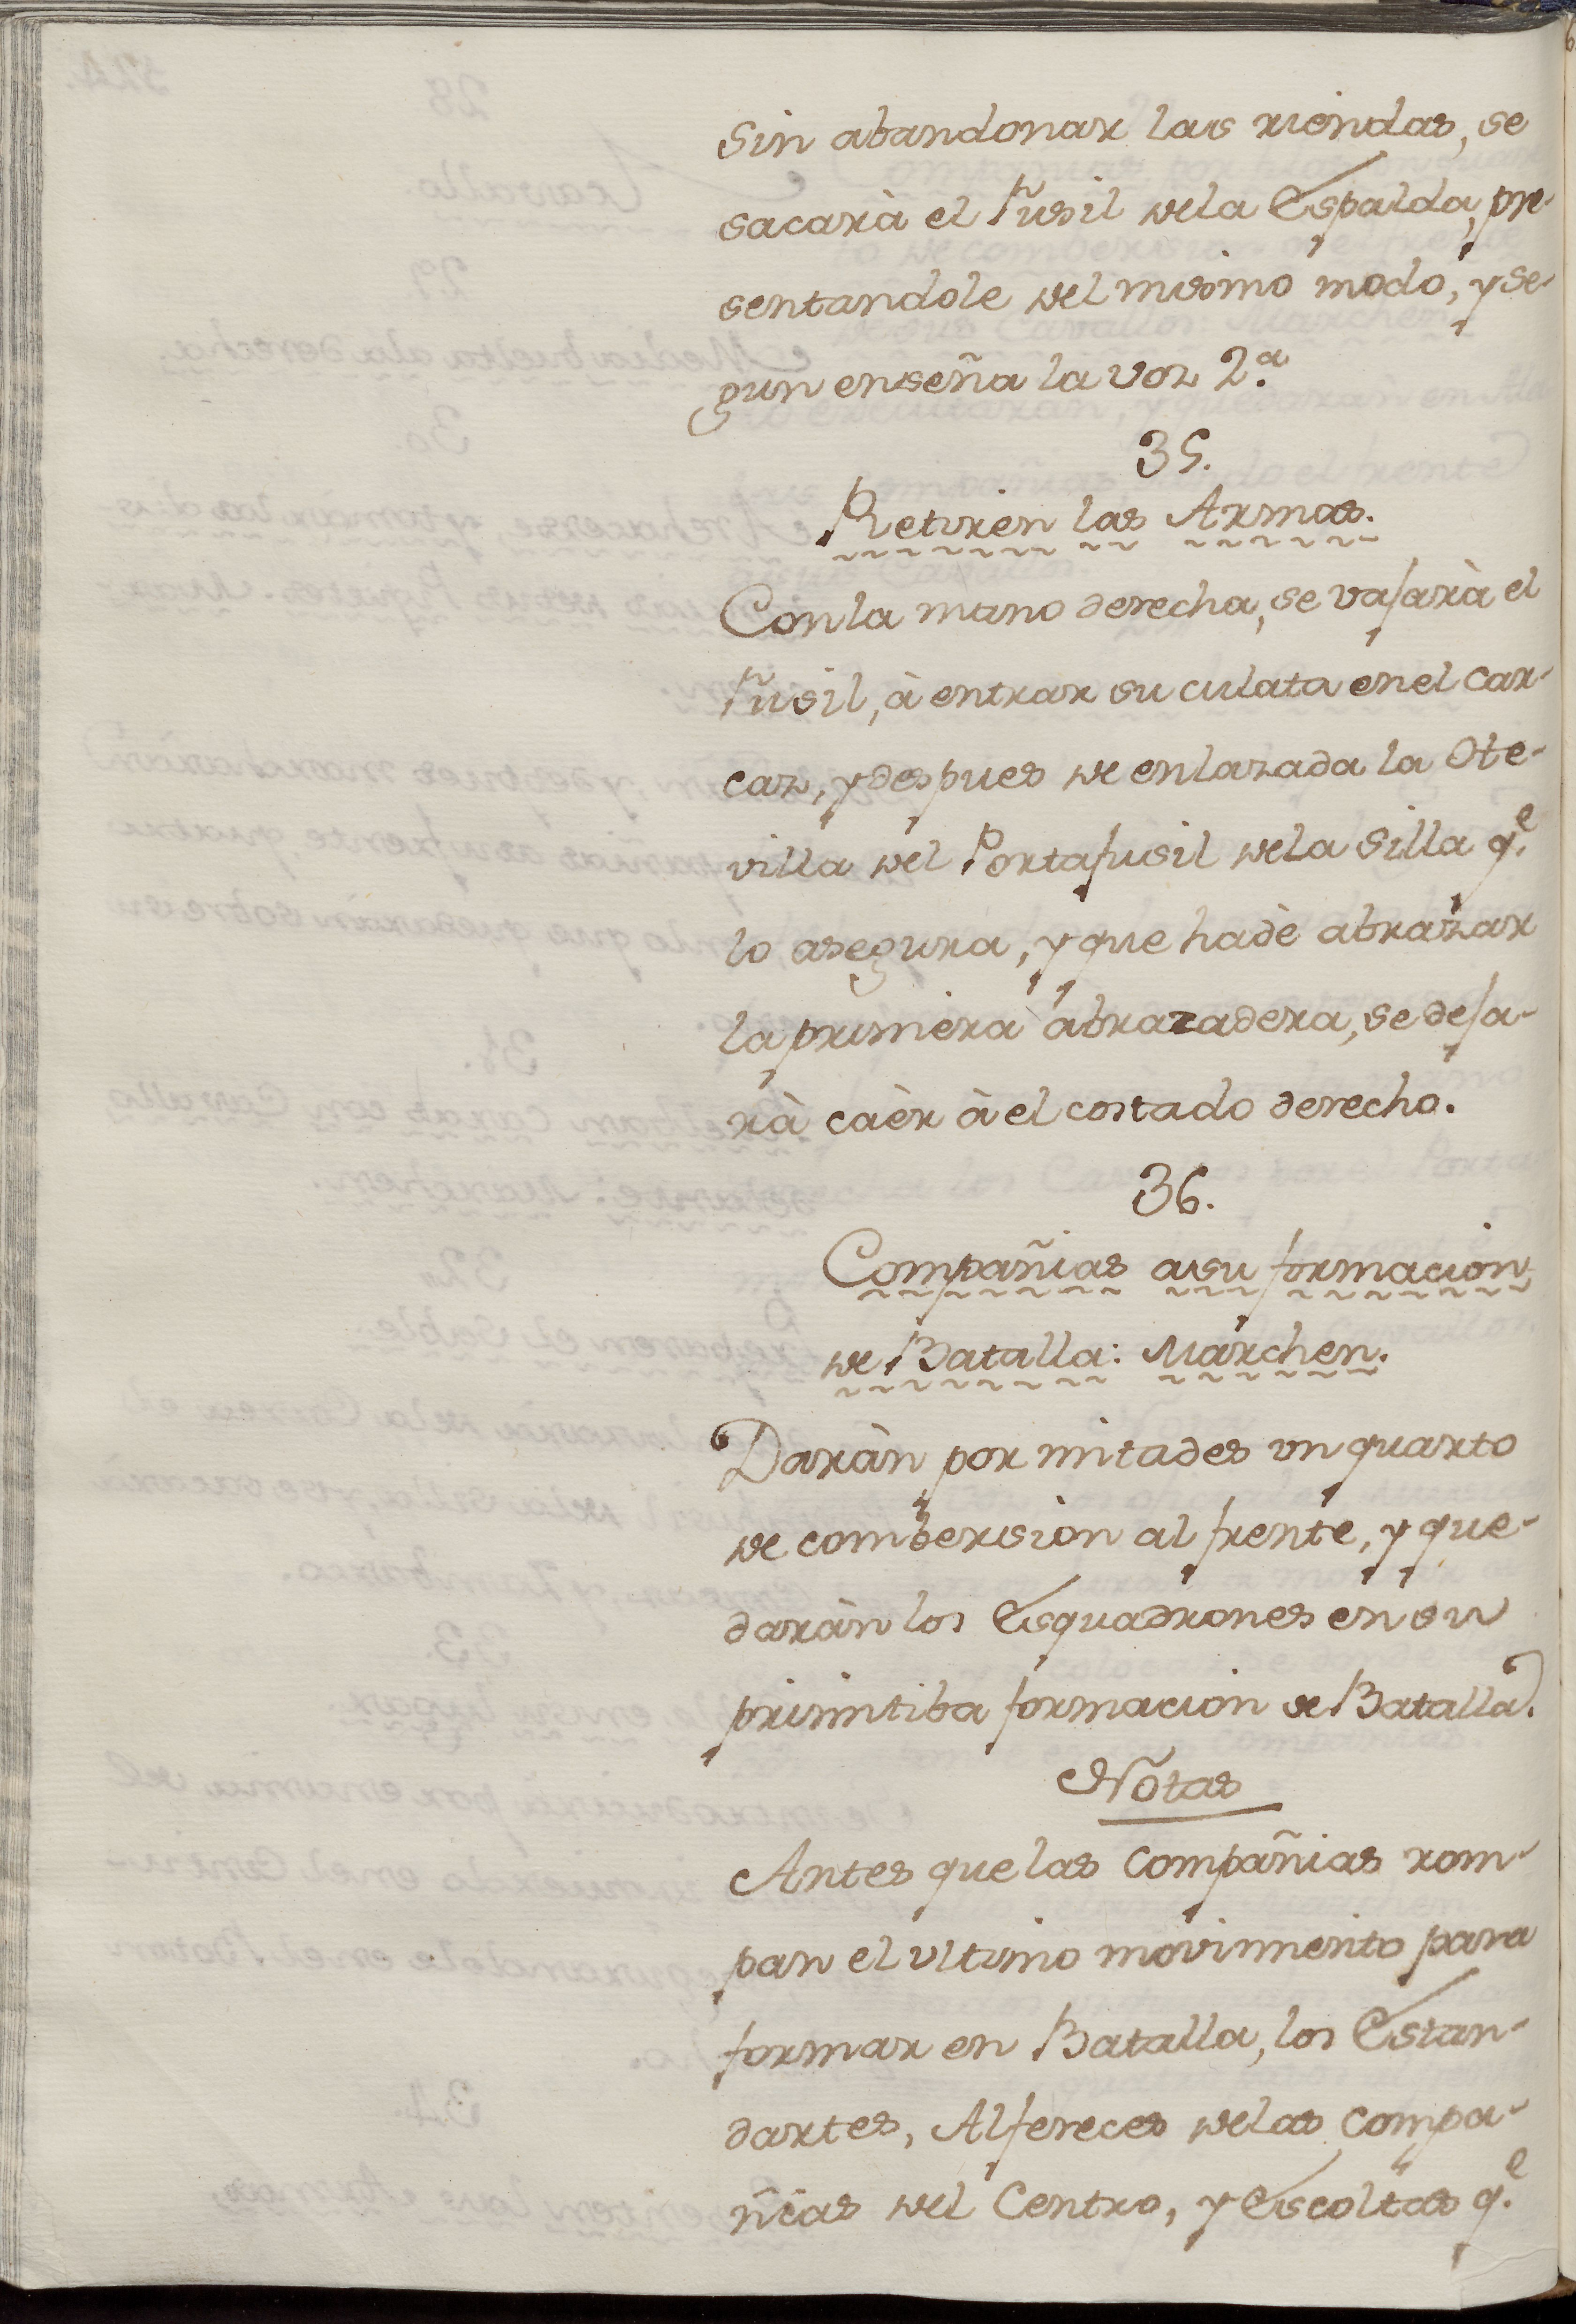 sin abandonar las riendas, se
sacarà el Fusil dela Espalda, pre-
sentandole del mismo modo, y se-
gun enseña la voz 2.ª
35.
Retiren las Armas.
Con la mano derecha, se vajarà el
Fusil, à entrar su culata en el car-
caz, y despues de enlazada la Ote-
villa del Portafusil dela silla q.e
lo asegura, y que hadè abrazar
la primera abrazadera, se deja-
rà caèr à el costado derecho.
36.
Compañias asu formacion
de Batalla: Marchen.
Daràn por mitades un quarto
de combersion al frente, y que-
daràn los Esquadrones en su
primitiba formacion de Batalla.
Notas
Antes que las Compañias rom-
pan el ultimo movimiento para
formar en Batalla, los Estan-
dartes, Alfereces delas Compa-
ñias del Centro, y Escoltas q.e